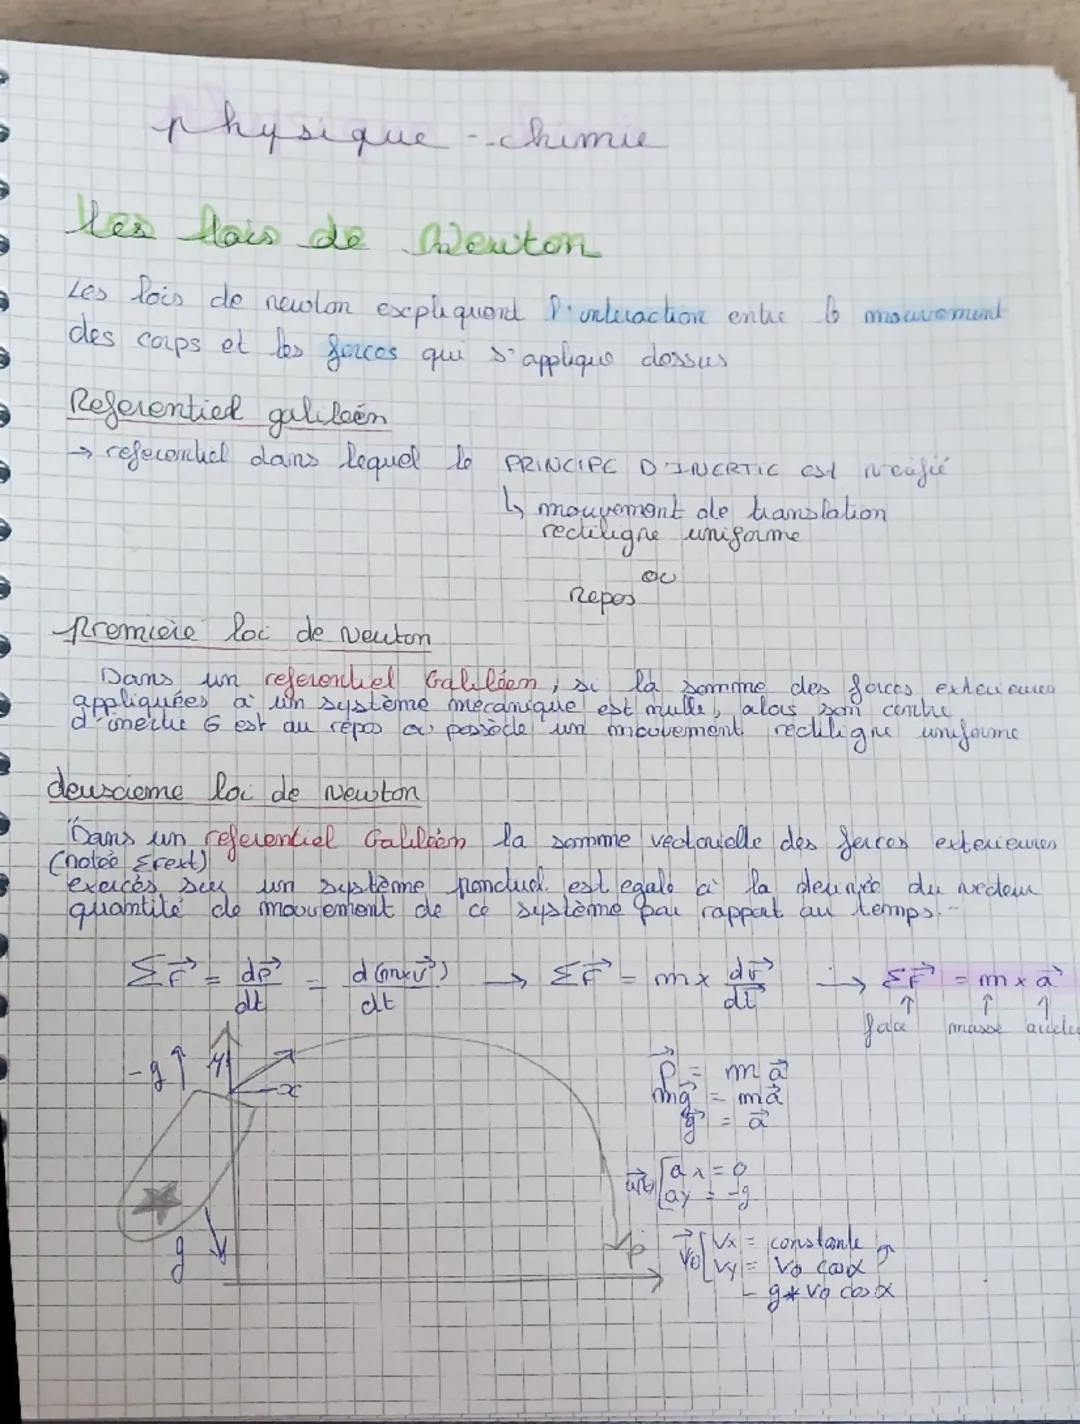 physique - chimie
Les lois de Newton
Les lois de newton expliquent l'interaction entre le mouvement
des corps et les forces qui s'applique dessus
Referentiel galiléen
→ referentiel dans lequel le PRINCIPE D'INERTIE est vérifié
↳ mouvement de translation
rectiligne uniforme
ou
Repos
Premiere loi de Newton
Dans un referentiel Galiléen, si la somme des forces exterieures
appliquées à un système mécanique est nulle, alors son centre
d'inertie G est au repos ou possède un mouvement rectiligne uniforme
deuxieme loi de Newton
Dans un referentiel Galiléen la somme vectorielle des forces exterieures
(notée Σfext)
exercés sur un système ponctuel est egale à la derivée du vecteur
quantité de mouvement de ce système par rapport au temps.
ΣF⃗ = dp⃗/dt = d(m×v⃗)/dt → ΣF⃗ = m × dv⃗/dt → ΣF⃗ = m × a⃗
force masse accele
-g y x
P⃗ = m a⃗
mg⃗ = ma⃗
g⃗ = a⃗
a⃗(t) [ax = 0
ay = -g
V⃗0 [Vx = constante
Vy = V0 cosα
- g * V0 cos α
g
p